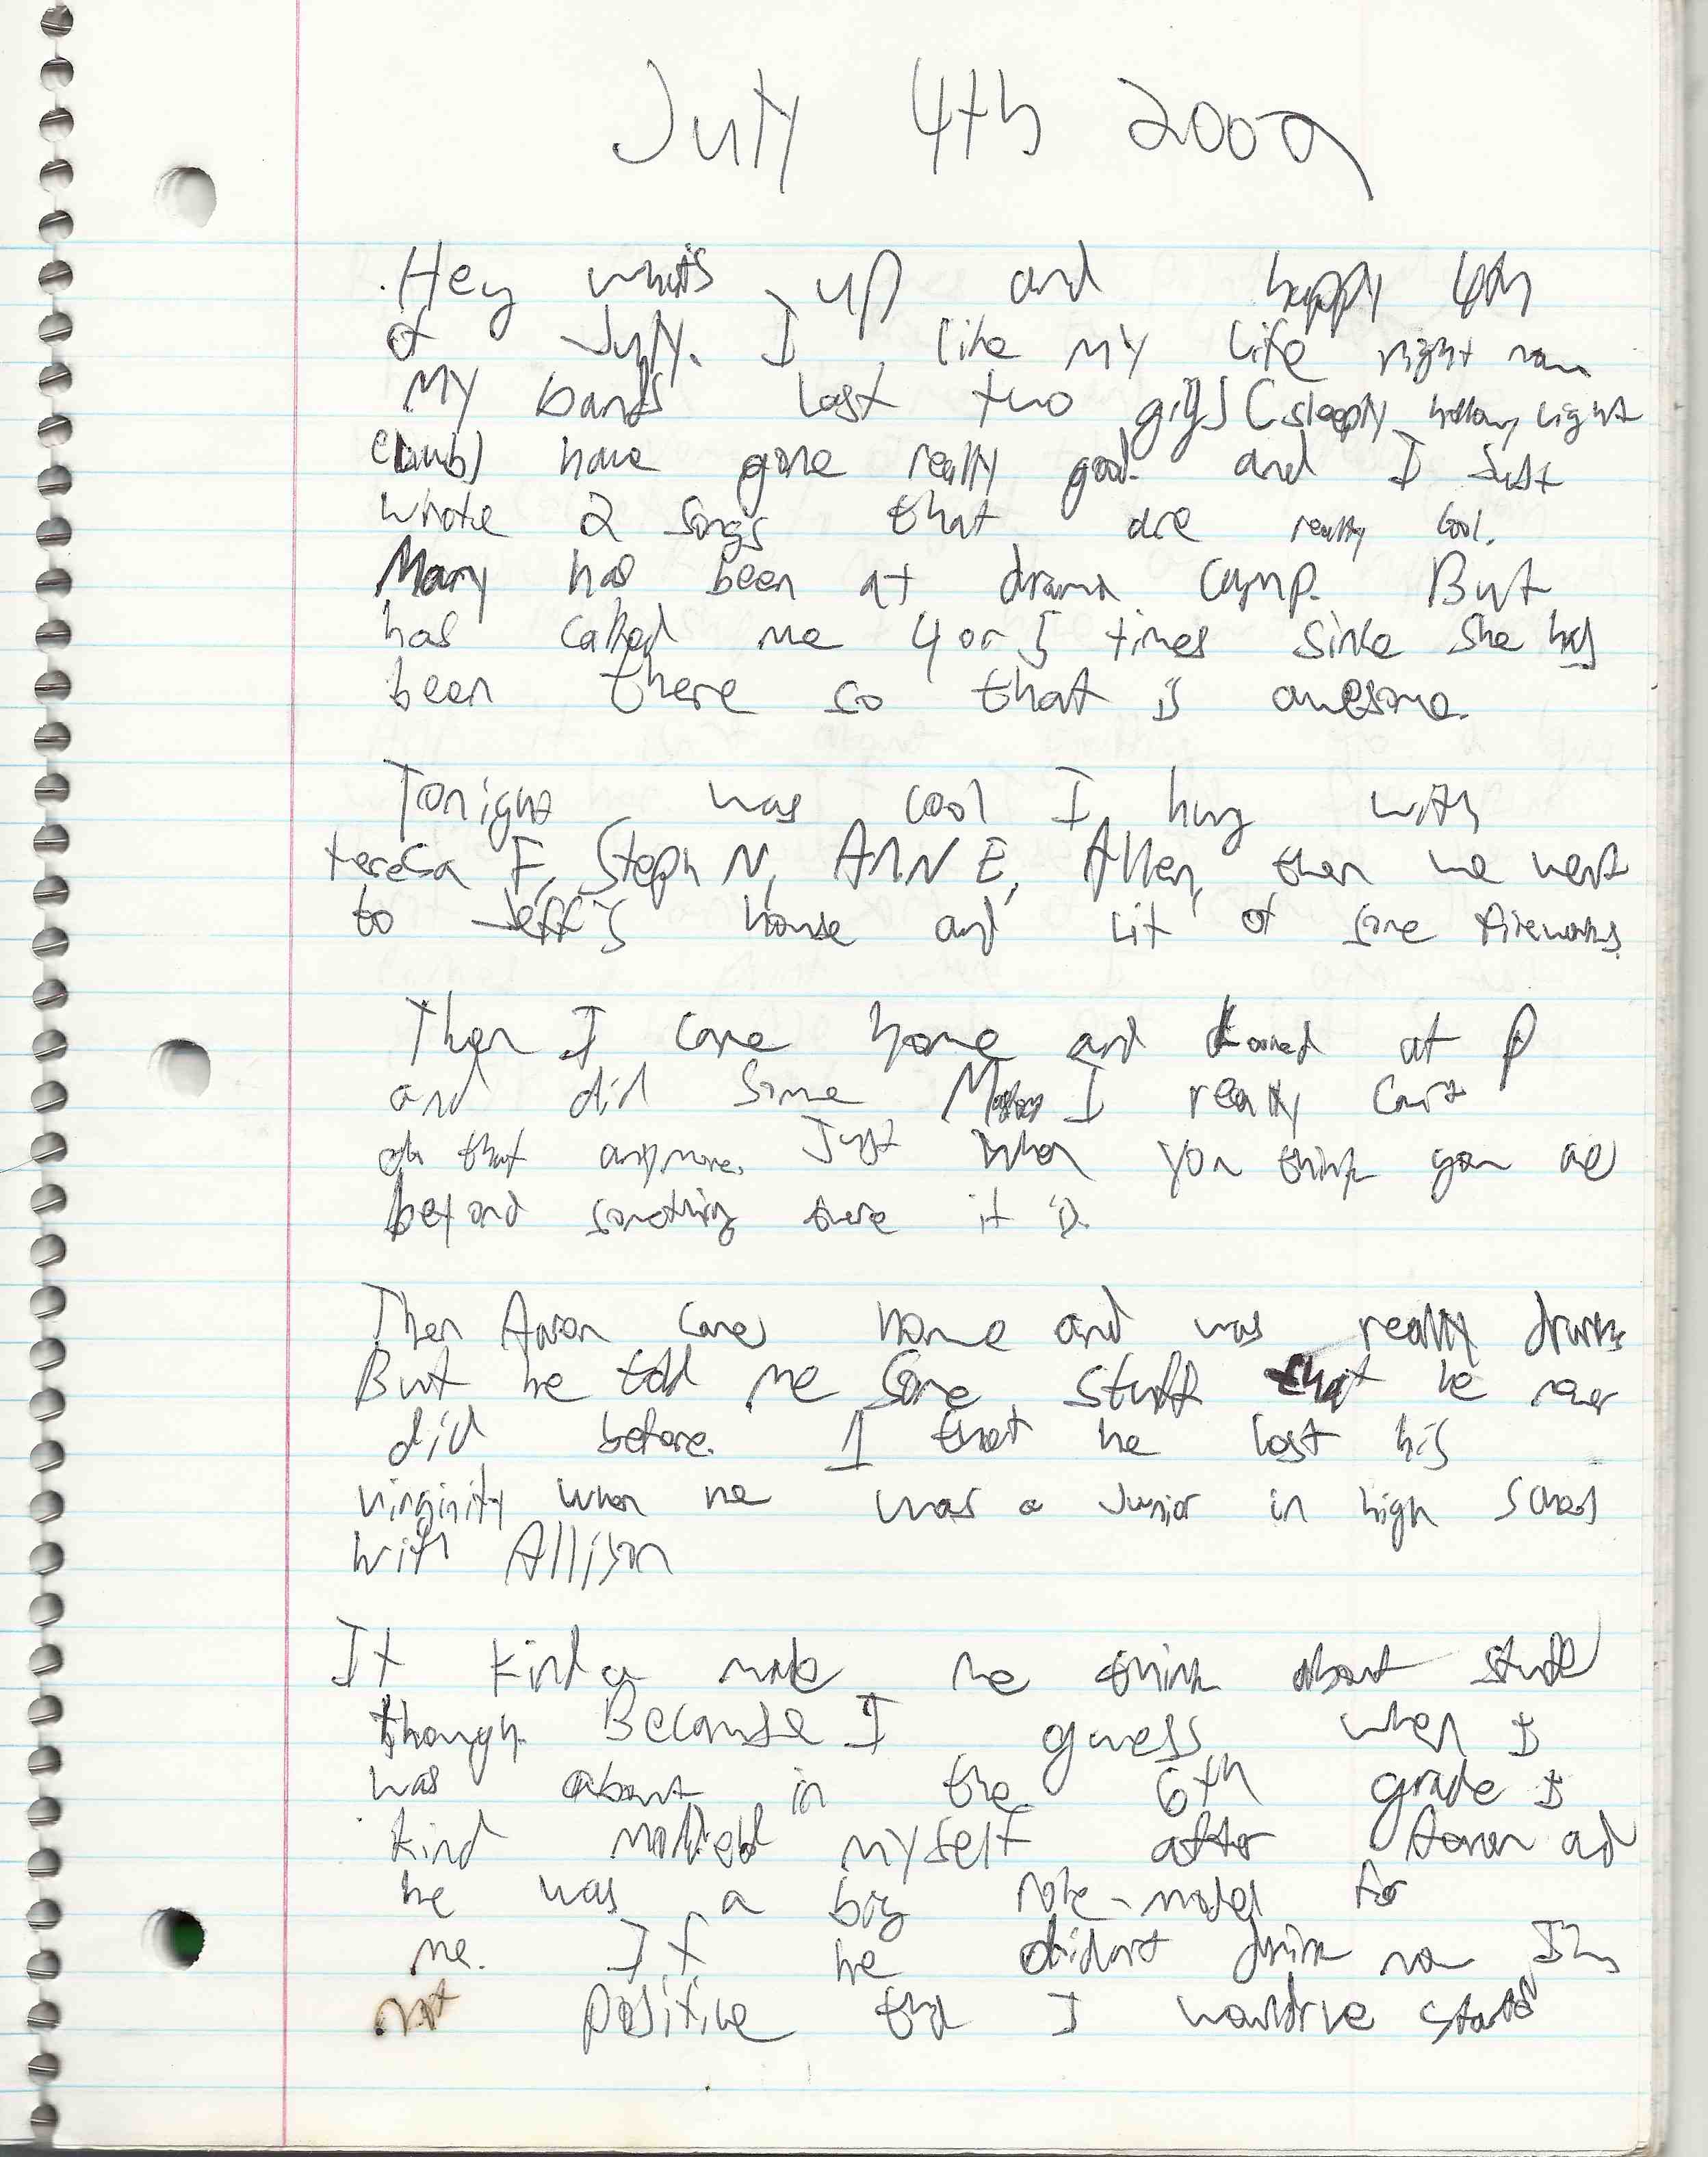 July 4th 2009
Hey what's up and happy 4th
of July. I like my life right now
My bands last two gigs (sleepy hollow, light
club) have gone really good. and I Just
wrote 2 songs that are really cool.
Mary has been at drama camp. But
has called me 4 or 5 times since she has
been there so that is awesome.
Tonight was cool I hung with
teresa F, Steph N, ANN E, Allen, then we went
to Jeff's house and lit of some fireworks.
Then I came home and looked at P
and did some I really can't
do that anymore. Just when you think you are
beyond something there it is.
Then Aaron came home and was really drunk
But he told me some stuff that he never
did before. I that he lost his
virginity when he was a Junior in high school
with Allison
It kind a make me think about stuff
though. Because I guess when I
was about in the 6th grade I
kind molded myself after Aaron and
he was a big role-model for
me. If he didnt drink now I'm
not positive that I wouldn've started